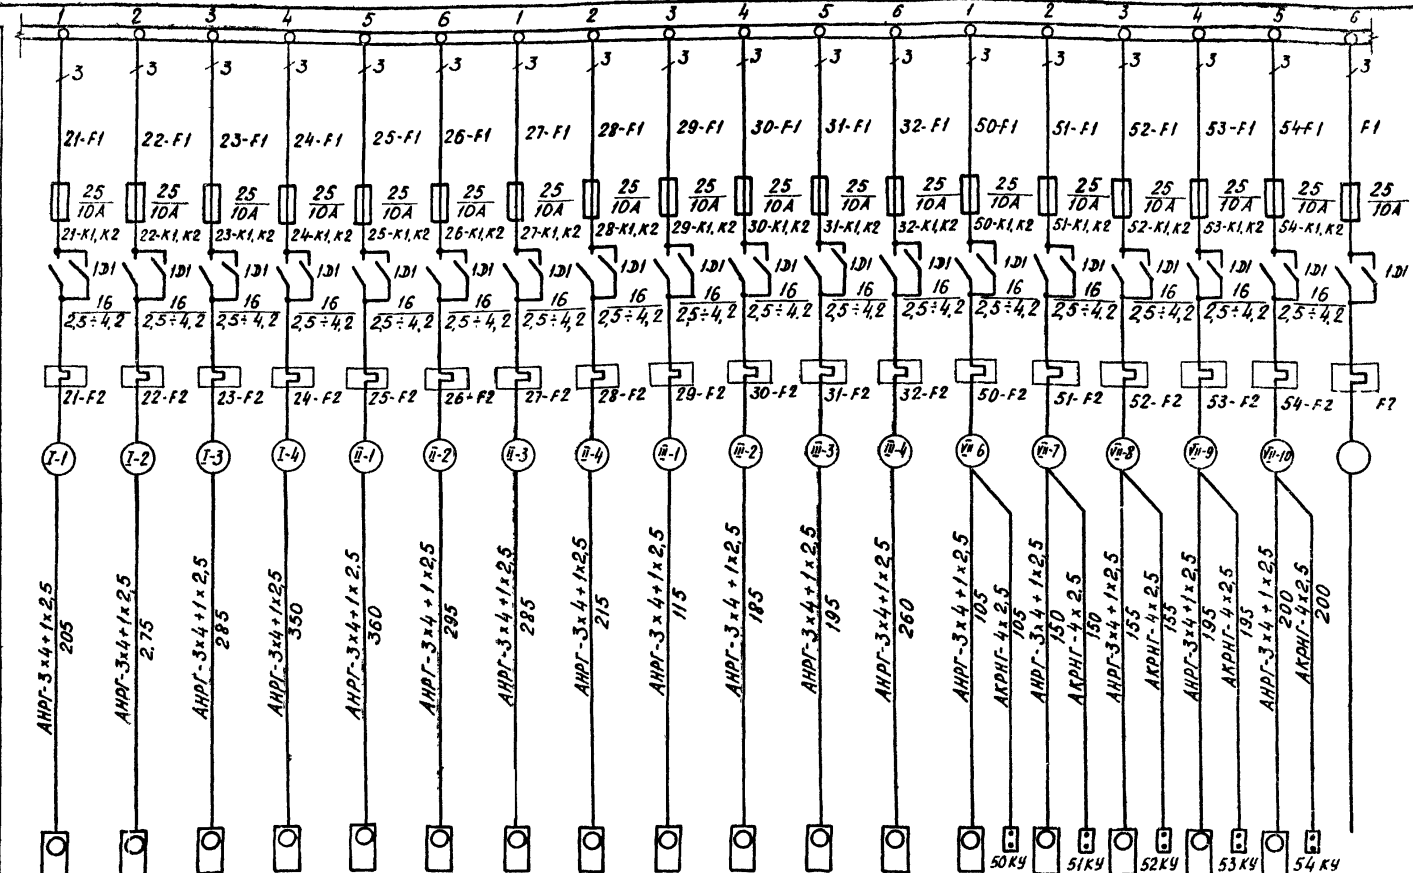 1 2 3 4 5 6 1 2 3 4 5 6 1 2 3 4 5 6
3 3 3 3 3 3 3 3 3 3 3 3 3 3 3 3 3 3
21-F1 22-F1 23-F1 24-F1 25-F1 26-F1 27-F1 28-F1 29-F1 30-F1 31-F1 32-F1 50-F1 51-F1 52-F1 53-F1 54-F1 F1
25 25 25 25 25 25 25 25 25 25 25 25 25 25 25 25 25 25
10A 10A 10A 10A 10A 10A 10A 10A 10A 10A 10A 10A 10A 10A 10A 10A 10A 10A
21-K1,K2 22-K1,K2 23-K1,K2 24-K1,K2 25-K1,K2 26-K1,K2 27-K1,K2 28-K1,K2 29-K1,K2 30-K1,K2 31-K1,K2 32-K1,K2 50-K1,K2 51-K1,K2 52-K1,K2 53-K1,K2 54-K1,K2
1Д1 1Д1 1Д1 1Д1 1Д1 1Д1 1Д1 1Д1 1Д1 1Д1 1Д1 1Д1 1Д1 1Д1 1Д1 1Д1 1Д1 1Д1
16 16 16 16 16 16 16 16 16 16 16 16 16 16 16 16 16
2,5÷4,2 2,5÷4,2 2,5÷4,2 2,5÷4,2 2,5÷4,2 2,5÷4,2 2,5÷4,2 2,5÷4,2 2,5÷4,2 2,5÷4,2 2,5÷4,2 2,5÷4,2 2,5÷4,2 2,5÷4,2 2,5÷4,2 2,5÷4,2 2,5÷4,2
21-F2 22-F2 23-F2 24-F2 25-F2 26-F2 27-F2 28-F2 29-F2 30-F2 31-F2 32-F2 50-F2 51-F2 52-F2 53-F2 54-F2 F2
I-1 I-2 I-3 I-4 II-1 II-2 II-3 II-4 III-1 III-2 III-3 III-4 VII-6 VII-7 VII-8 VII-9 VII-10
АНРГ-3х4+1х2,5
205
АНРГ-3х4+1х2,5
2,75
АНРГ-3х4+1х2,5
285
АНРГ-3х4+1х2,5
350
АНРГ-3х4+1х2,5
360
АНРГ-3х4+1х2,5
295
АНРГ-3х4+1х2,5
285
АНРГ-3х4+1х2,5
215
АНРГ-3х4+1х2,5
115
АНРГ-3х4+1х2,5
185
АНРГ-3х4+1х2,5
195
АНРГ-3х4+1х2,5
260
АНРГ-3х4+1х2,5
105
АКРНГ-4х2,5
105
АНРГ-3х4+1х2,5
150
АКРНГ-4х2,5
150
АНРГ-3х4+1х2,5
155
АКРНГ-4х2,5
155
АНРГ-3х4+1х2,5
195
АКРНГ-4х2,5
195
АНРГ-3х4+1х2,5
200
АКРНГ-4х2,5
200
50КУ 51КУ 52КУ 53КУ 54КУ